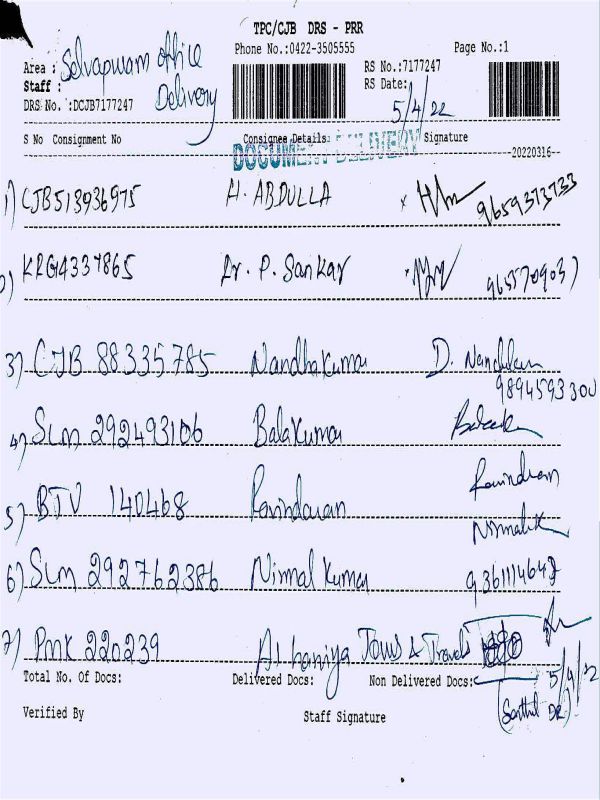 TPC/CJB DRS - PRR
Phone No.:0422-3505555 Page No.:1
Area : Selvapuram office
Staff : Delivery
DRS No. :DCJB7177247
RS No.:7177247
RS Date: 5/4/22
S No Consignment No Consignee Details Signature
DOCUMENT DELIVERY
20220316
1) CJB513936975 H. ABDULLA 9659373733
KRG4337865 Dr. P. Sankar
3) CJB 88335785 Nandhakumar D.
9894593300
4) SLM 292493106 Balakumar
5) BTV 140468 Ravindaran
6) SLM 292762386 Nirmal kumar
7) PMK 220239 Al haniya Tours & Travels
Total No. Of Docs: Delivered Docs: Non Delivered Docs: 5/4/22
Verified By Staff Signature